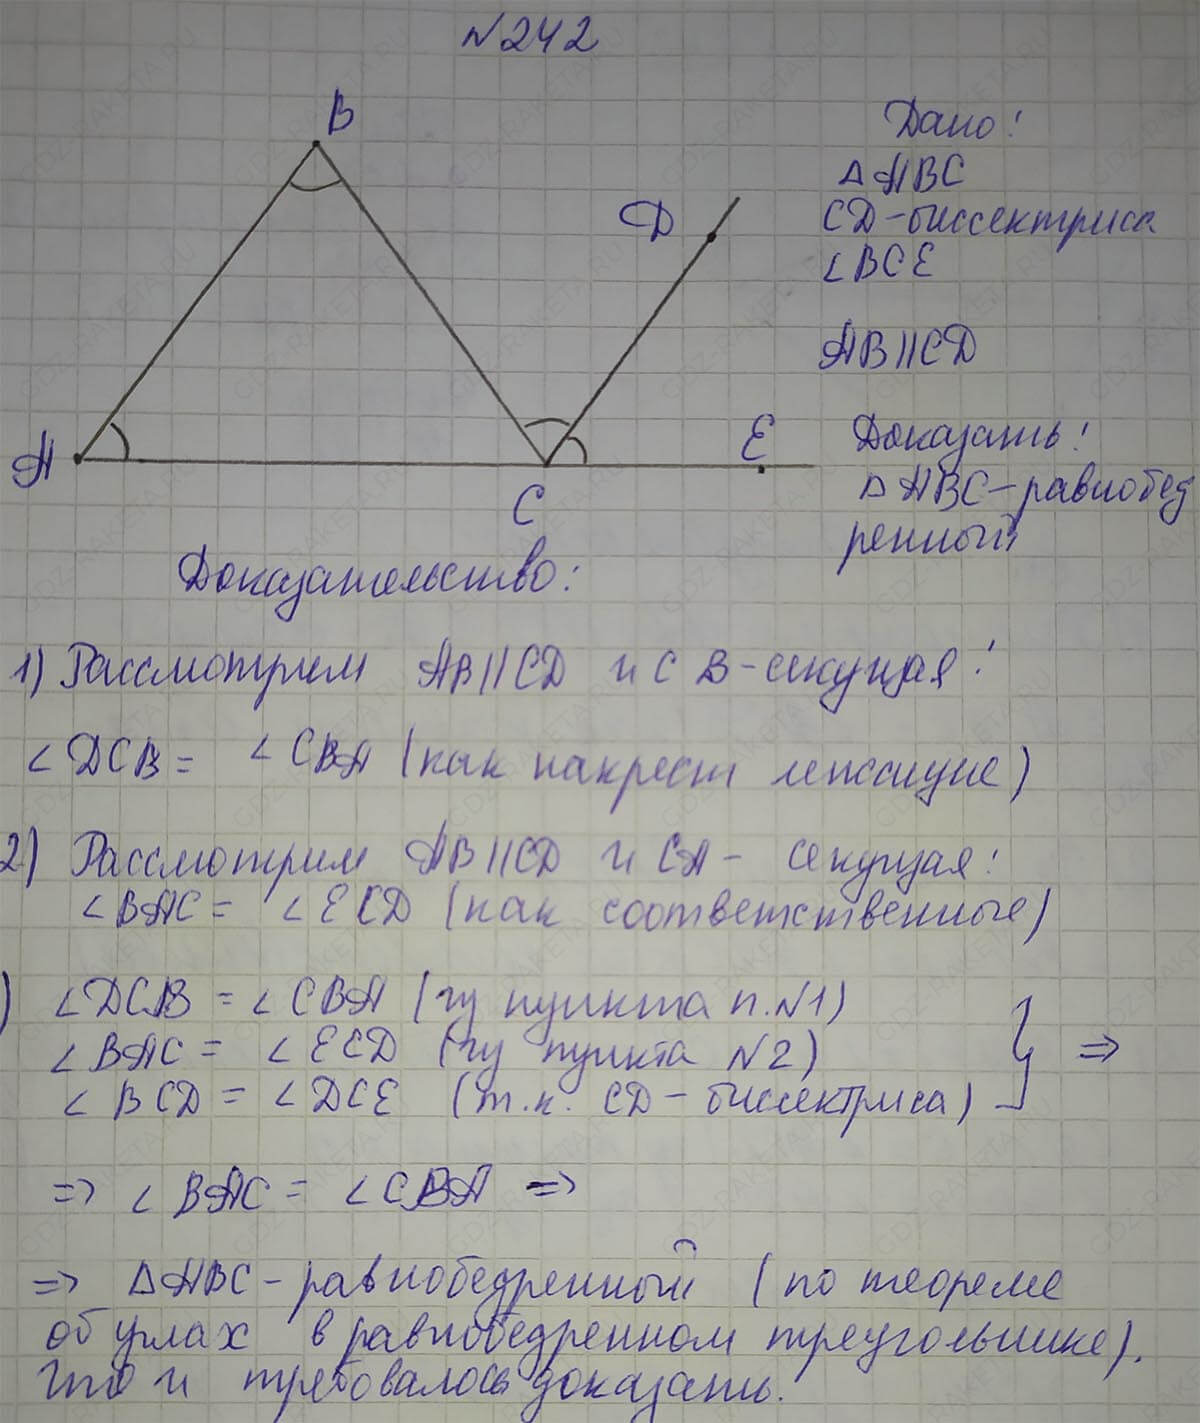 №242
B
Дано:
△ABC
CD-биссектриса
∠BCE
D
AB||CD
E
Доказать:
△ABC-равнобед
ренный
A
C
Доказательство:
1) Рассмотрим AB||CD и CB-секущая:
∠DCB = ∠CBA (как накрест лежащие)
2) Рассмотрим AB||CD и CA- секущая:
∠BAC = ∠ECD (как соответственные)
) ∠DCB = ∠CBA (из пункта п.№1)
∠BAC = ∠ECD (из пункта №2) } =>
∠BCD = ∠DCE (т.к. CD-биссектриса)
=> ∠BAC = ∠CBA =>
=> △ABC-равнобедренный (по теореме
об углах в равнобедренном треугольнике).
Что и требовалось доказать.
GDZ-RAKETA.RU